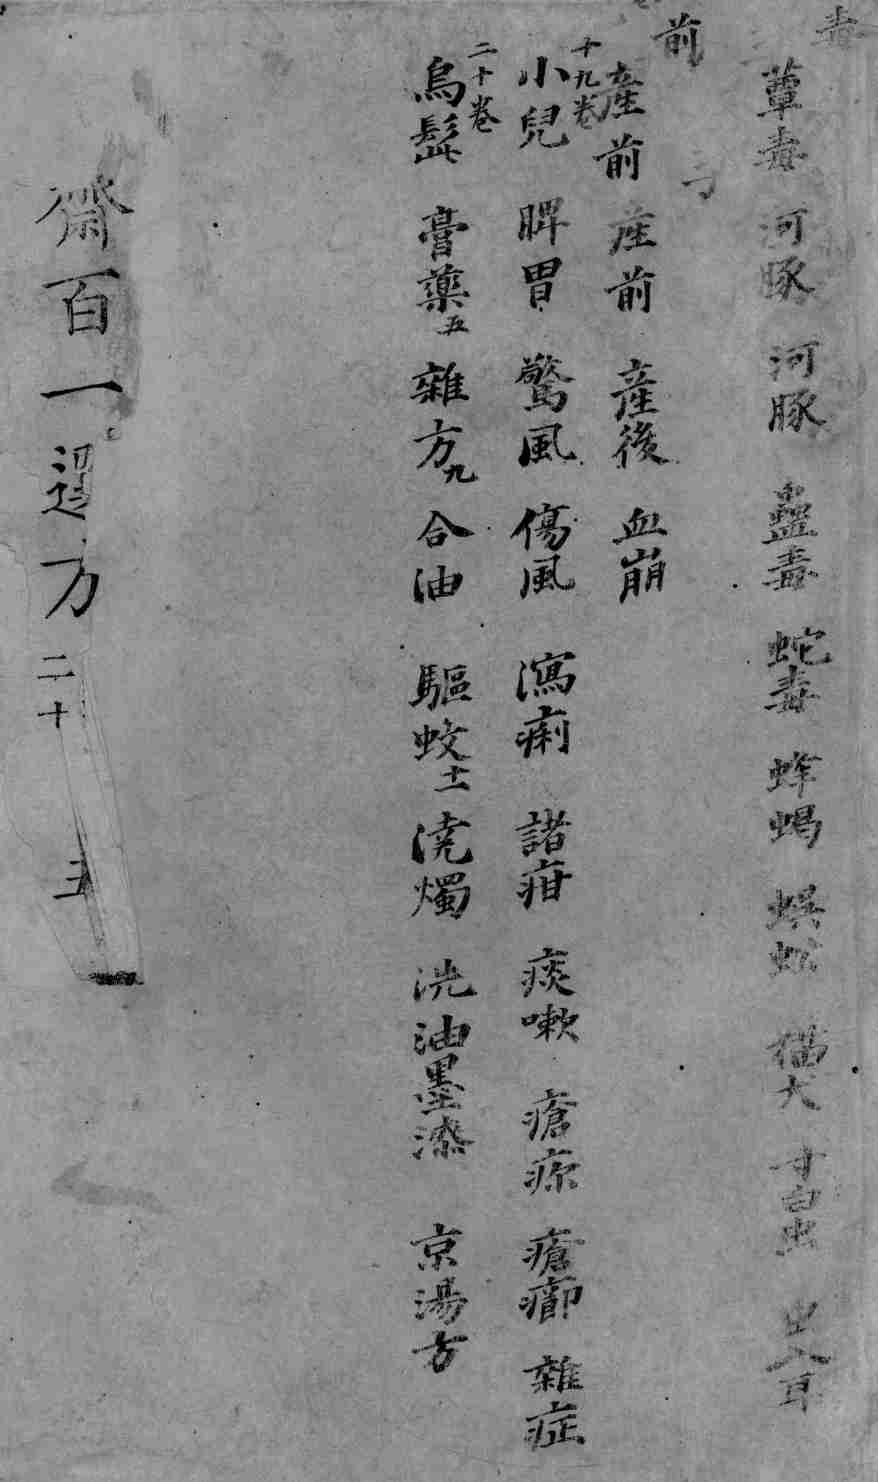 毒
蕈毒 河豚 河豚 蠱毒 蛇毒 蜂蝎 蜈蚣 猫犬 寸白虫 虫入耳
前
産前 産前 産後 血崩
十九卷
小兒 脾胃 驚風 傷風 瀉痢 諸疳 痰嗽 瘡疹 瘡癤 雜症
二十卷
烏髭 膏藥五 雜方九 合油 驅蚊十一 澆燭 洗油墨漆 京湯方
齋百一選方 二十 五